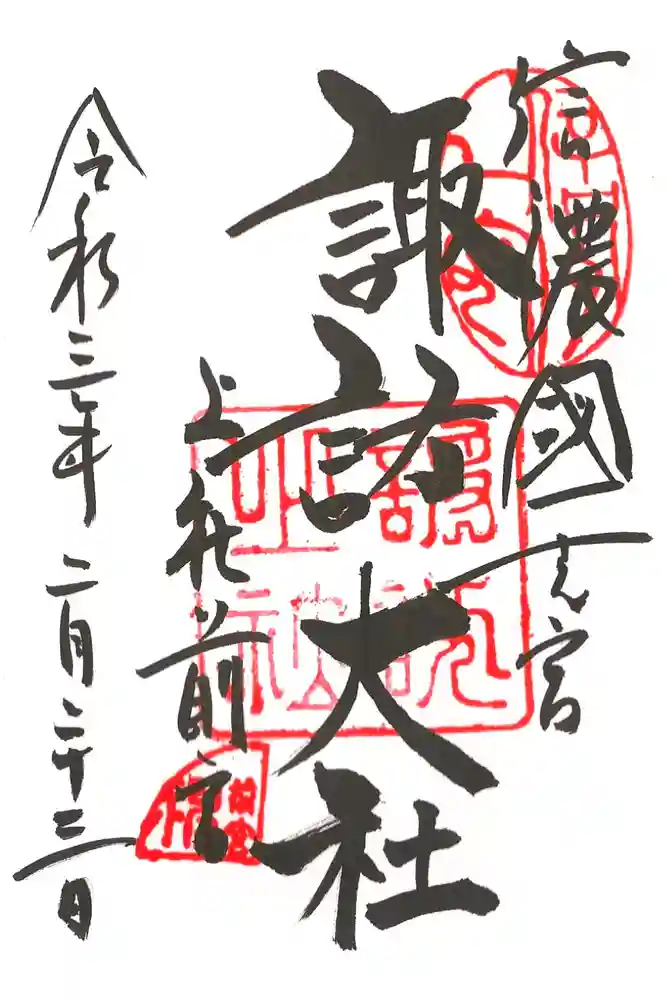 信濃國一之宮
諏訪大社
上社前宮
令和三年二月二十三日